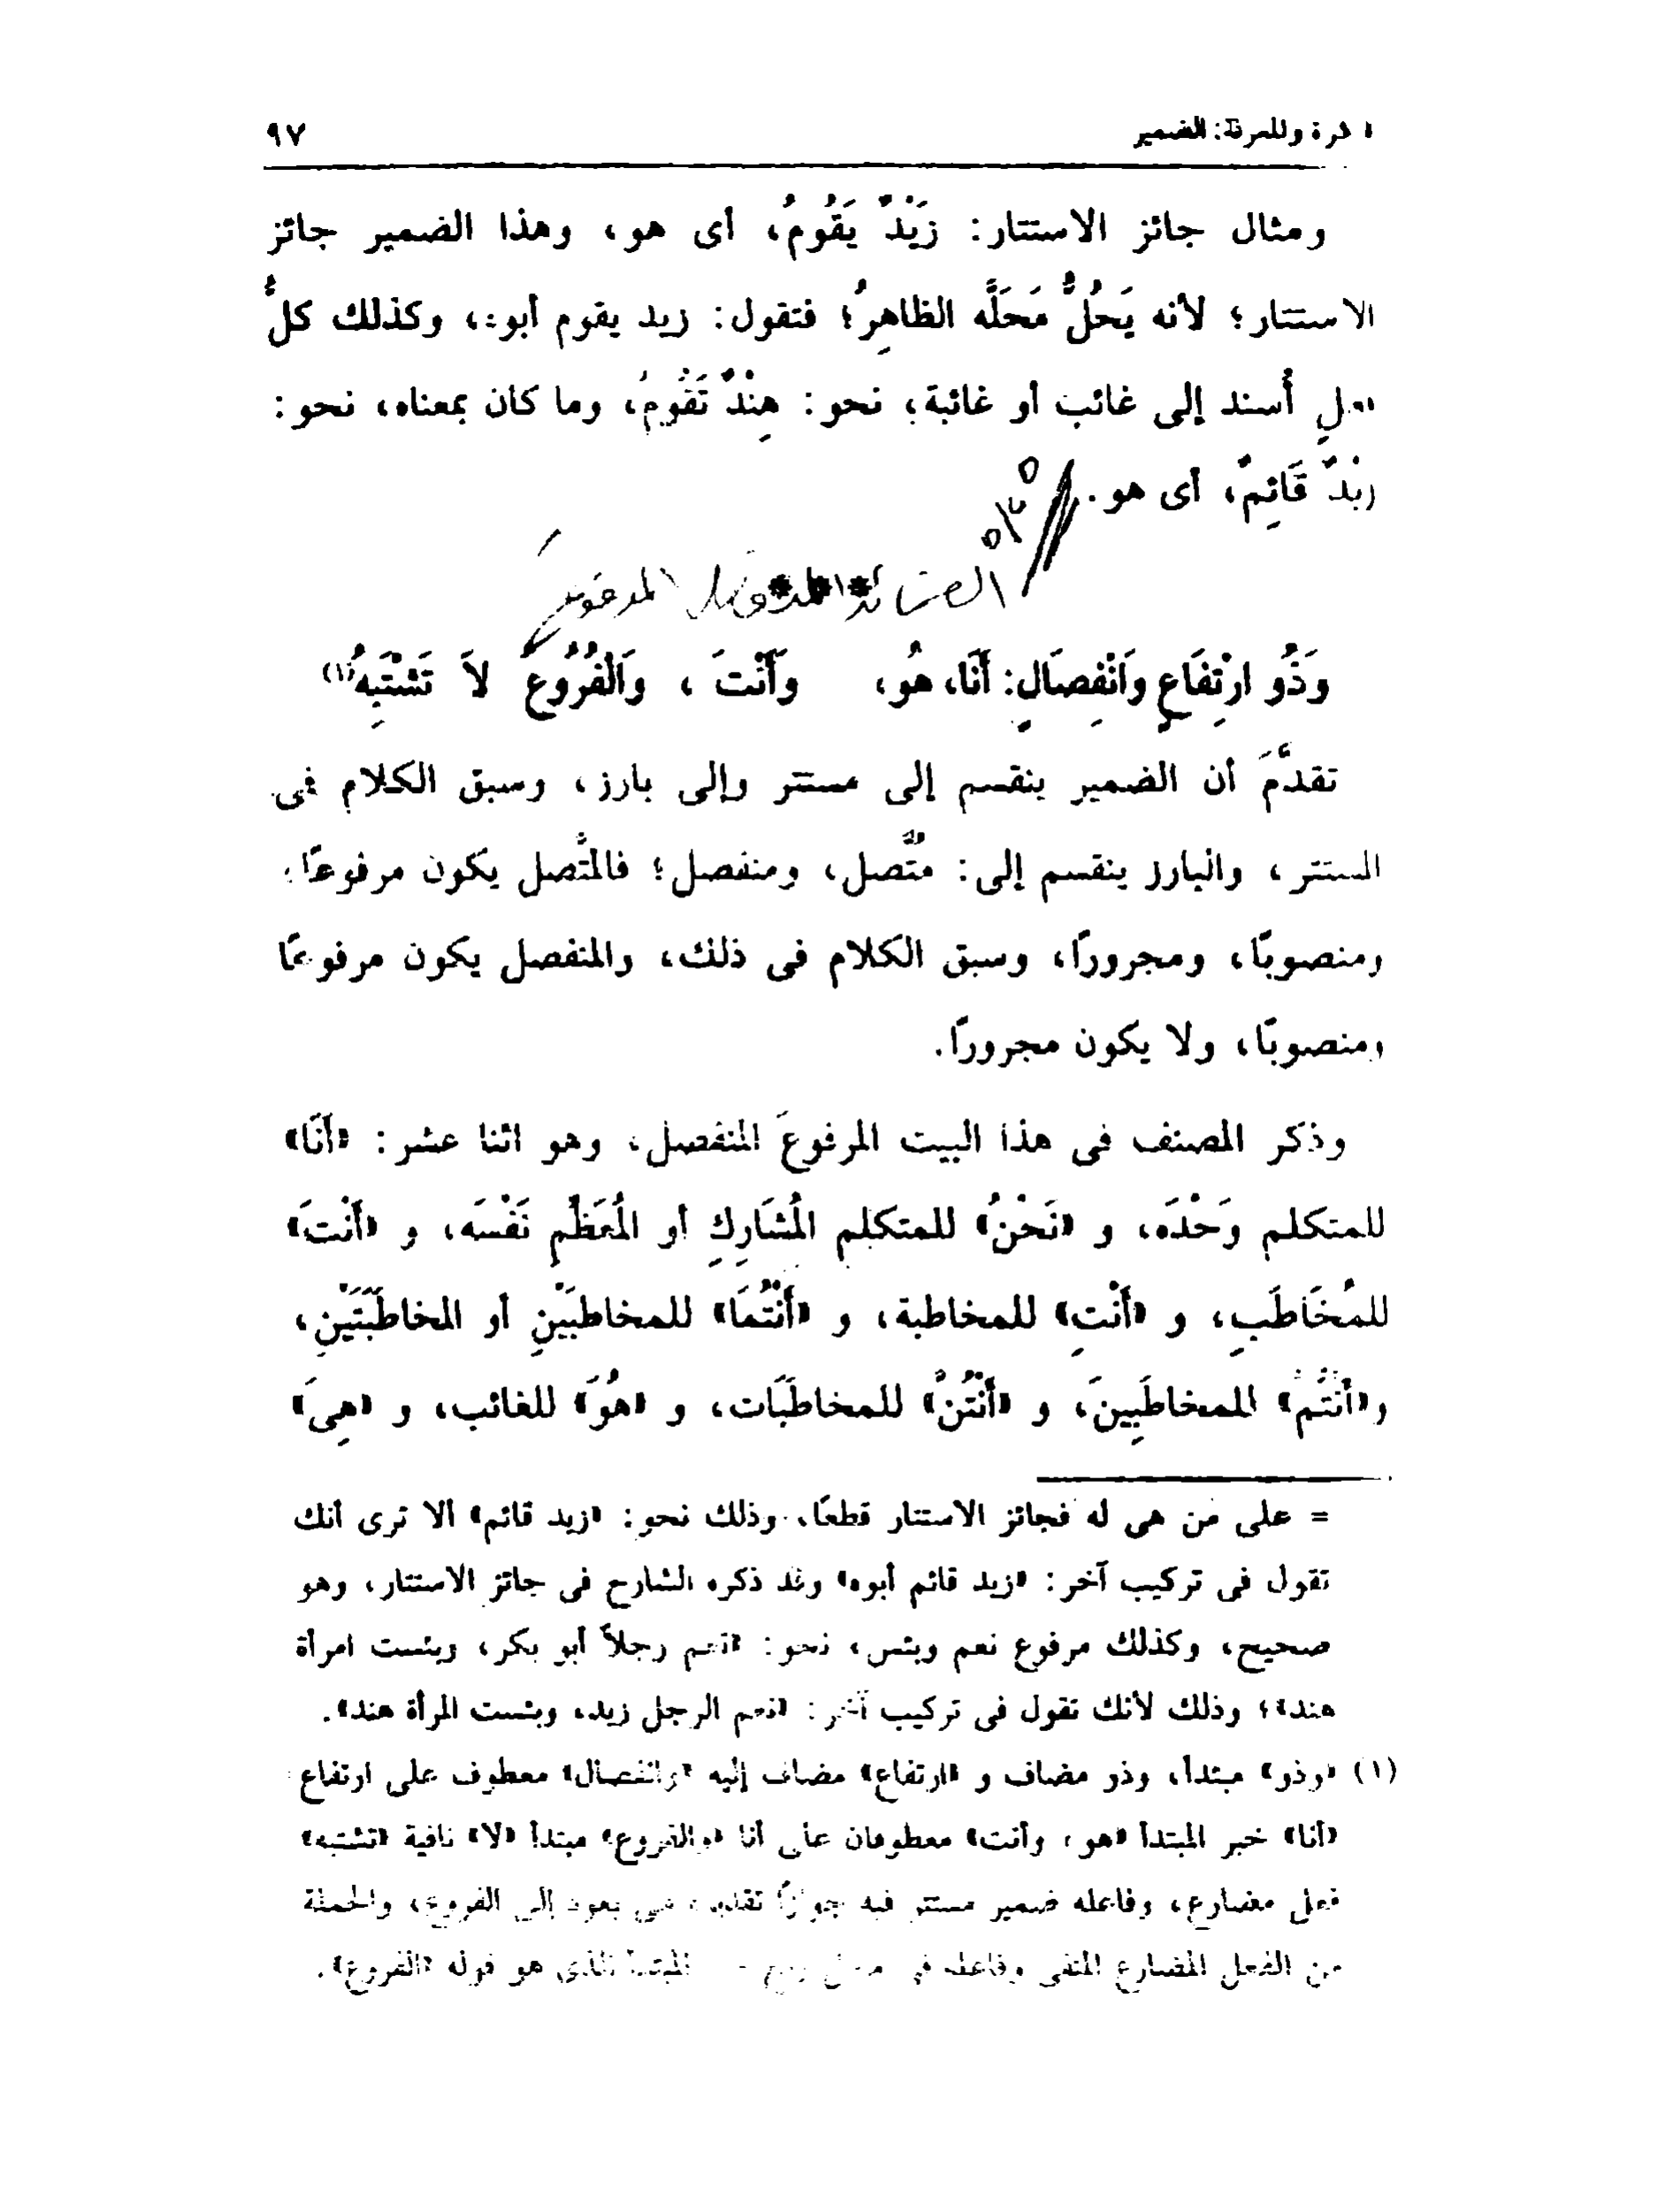 النكرة والمعرفة: الضمير ٩٧
ومثال جائز الاستتار: زَيْدٌ يَقُومُ، أى هو، وهذا الضمير جائز
الاستتار؛ لأنه يَحُلُّ مَحَلَّه الظاهِرُ؛ فتقول: زيد يقوم أبوه، وكذلك كلُّ
فعلٍ أُسند إلى غائب أو غائبة، نحو: هِنْدٌ تَقُومُ، وما كان بمعناه، نحو:
زَيْدٌ قَائِمٌ، أى هو.
المرفوع
وَذُو ارْتِفَاعٍ وَانْفِصَالٍ: أَنَا، هُو، وَأَنْتَ ، وَالْفُرُوعُ لاَ تَشْتَبِهُ(١)
تقدَّمَ أن الضمير ينقسم إلى مستتر وإلى بارز، وسبق الكلام فى
المستتر، والبارز ينقسم إلى: متَّصل، ومنفصل؛ فالمتَّصل يكون مرفوعًا،
ومنصوبًا، ومجرورًا، وسبق الكلام فى ذلك، والمنفصل يكون مرفوعًا
ومنصوبًا، ولا يكون مجرورًا.
وذكر المصنف فى هذا البيت المرفوعَ المنفصل، وهو اثنا عشر: «أنَا»
للمتكلم وَحْدَه، و «نَحْنُ» للمتكلم المُشَارِكِ أو المُعَظِّمِ نَفْسَه، و «أَنْتَ»
للمُخَاطَبِ، و «أَنْتِ» للمخاطبة، و «أَنْتُمَا» للمخاطبَيْنِ أو المخاطَبَتَيْنِ،
و«أَنْتُمْ» للمخاطَبِينَ، و «أَنْتُنَّ» للمخاطَبَات، و «هُوَ» للغائب، و «هِىَ»
= على من هى له فجائز الاستتار قطعًا، وذلك نحو: «زيد قائم» ألا ترى أنك
تقول فى تركيب آخر: «زيد قائم أبوه» وقد ذكره الشارح فى جائز الاستتار، وهو
صحيح، وكذلك مرفوع نعم وبئس، نحو: «نعم رجلاً أبو بكر، وبئست امرأة
هند»؛ وذلك لأنك تقول فى تركيب آخر: «نعم الرجل زيد، وبئست المرأة هند».
(١) «وذو» مبتدأ، وذو مضاف و «ارتفاع» مضاف إليه «وانفصال» معطوف على ارتفاع
«أنا» خبر المبتدأ «هو، وأنت» معطوفان على أنا «والفروع» مبتدأ «لا» نافية «تشتبه»
فعل مضارع، وفاعله ضمير مستتر فيه جوازًا تقديره هى يعود إلى الفروع، والجملة
من الفعل المضارع المنفى وفاعله فى محل رفع المبتدأ الذى هو قوله «الفروع».